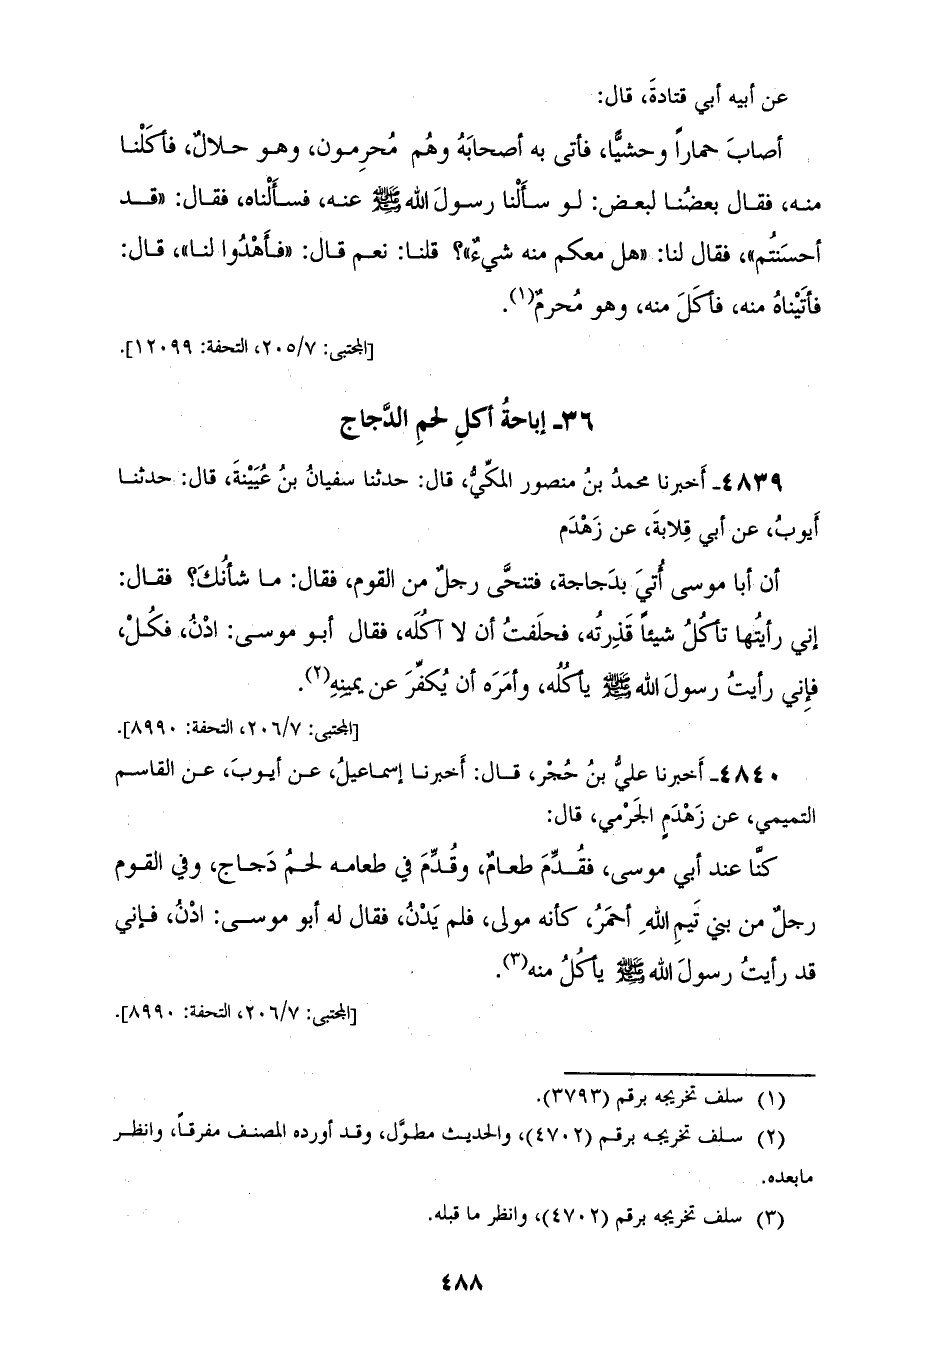 عن أبيه أبي قتادةَ، قال:
أصابَ حماراً وحشيًّا، فأتى به أصحابَهُ وهُم مُحرِمون، وهو حلالٌ، فأكَلْنا
منه، فقال بعضُنا لبعض: لو سأَلْنا رسولَ الله ﷺ عنه، فسأَلْناه، فقال: «قد
أحسَنتُم»، فقال لنا: «هل معكم منه شيءٌ»؟ قلنا: نعم قال: «فأَهْدُوا لنا»، قال:
فأتَيْناهُ منه، فأكَلَ منه، وهو مُحرمٌ(١).
[المجتبى: ٢٠٥/٧، التحفة: ١٢٠٩٩].
٣٦ـ إباحةُ أكلِ لحمِ الدَّجاج
٤٨٣٩ـ أَخبرنا محمدُ بنُ منصور المكِّيُّ، قال: حدثنا سفيانُ بنُ عُيَيْنةَ، قال: حدثنا
أَيوبُ، عن أبي قِلابةَ، عن زَهْدَم
أن أبا موسى أُتيَ بدَجاجة، فتنحَّى رجلٌ من القوم، فقال: ما شأنُكَ؟ فقال:
إني رأيتُها تأكُلُ شيئاً قَذِرتُه، فحلَفتُ أن لا آكُلَه، فقال أبو موسى: ادْنُ، فكُلْ،
فإني رأيتُ رسولَ الله ﷺ يأكُلُه، وأمَرَه أن يُكفِّرَ عن يمينِهِ(٢).
[المجتبى: ٢٠٦/٧، التحفة: ٨٩٩٠].
٤٨٤٠ـ أَخبرنا عليُّ بنُ حُجْر، قال: أَخبرنا إسماعيلُ، عن أيوبَ، عن القاسم
التميمي، عن زَهْدَمٍ الجَرْمي، قال:
كنَّا عند أبي موسى، فقُدِّمَ طعامٌ، وقُدِّمَ في طعامه لحمُ دَجاج، وفي القوم
رجلٌ من بني تَيمِ اللهِ أحمَرُ، كأنه مولى، فلم يَدْنُ، فقال له أبو موسى: ادْنُ، فإني
قد رأيتُ رسولَ الله ﷺ يأكُلُ منه(٣).
[المجتبى: ٢٠٦/٧، التحفة: ٨٩٩٠].
(١) سلف تخريجه برقم (٣٧٩٣).
(٢) سلف تخريجه برقم (٤٧٠٢)، والحديث مطوَّل، وقد أورده المصنف مفرقاً، وانظر
مابعده.
(٣) سلف تخريجه برقم (٤٧٠٢)، وانظر ما قبله.
٤٨٨